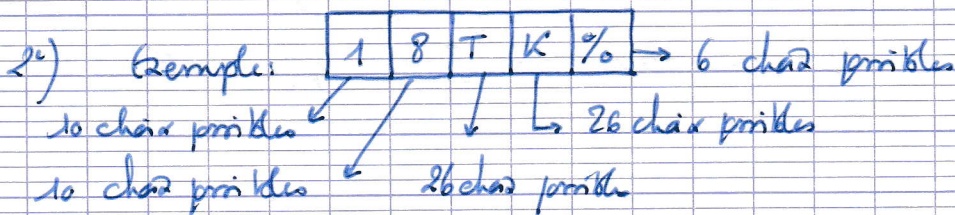 2°) Exemple: 1 8 T K % → 6 choix possibles
10 choix possibles 26 choix possibles
10 choix possibles 26 choix possible